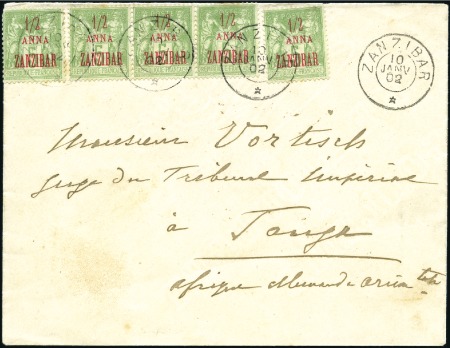 1/2 1/2 1/2 1/2 1/2
ANNA ANNA ANNA ANNA ANNA
ZANZIBAR ZANZIBAR ZANZIBAR ZANZIBAR ZANZIBAR
ZANZIBAR
10
JANV
02
ZANZIBAR
10
JANV
02
Monsieur Vortisch
Juge du Tribunal Impérial
à
Tanga
Afrique Allemande Orientale